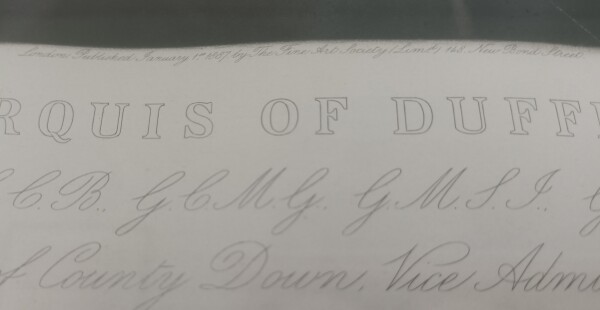 London Published January 1st 1897, by The Fine Art Society (Limd) 148, New Bond Street
RQUIS OF DUFF
C.B., G.C.M.G. G.M.S.I., G
of County Down, Vice Admi